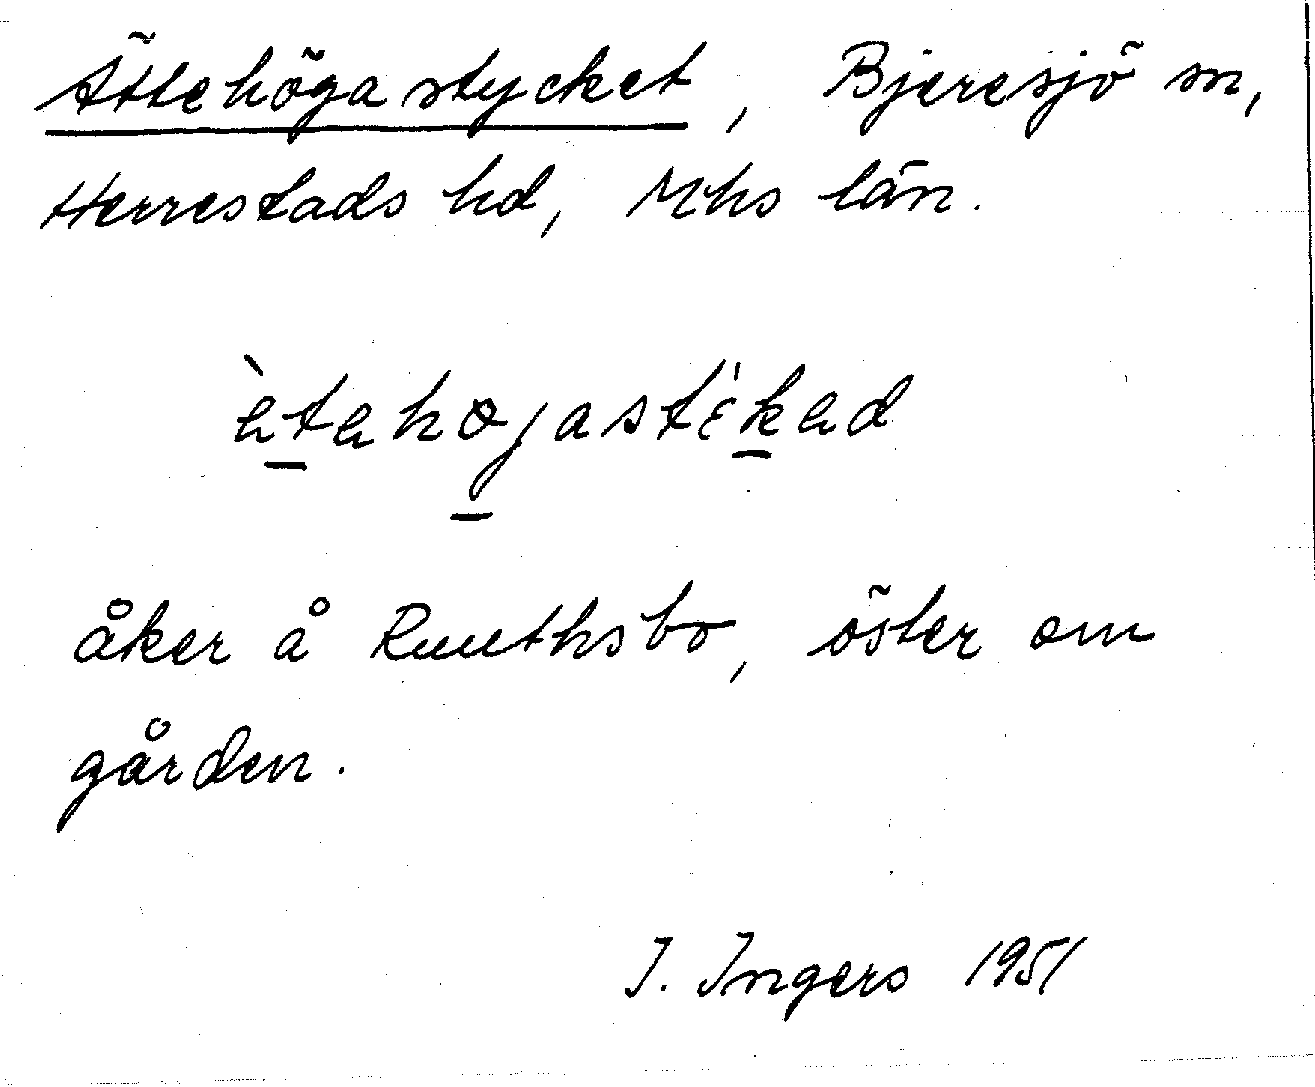 Ättehögastycket, Bjeresjö sn,
Herrestads hd, Mhs län.
ètahøjastɛ́kad
åker å Ruuthsbo, öster om
gården.
I. Ingers 1951